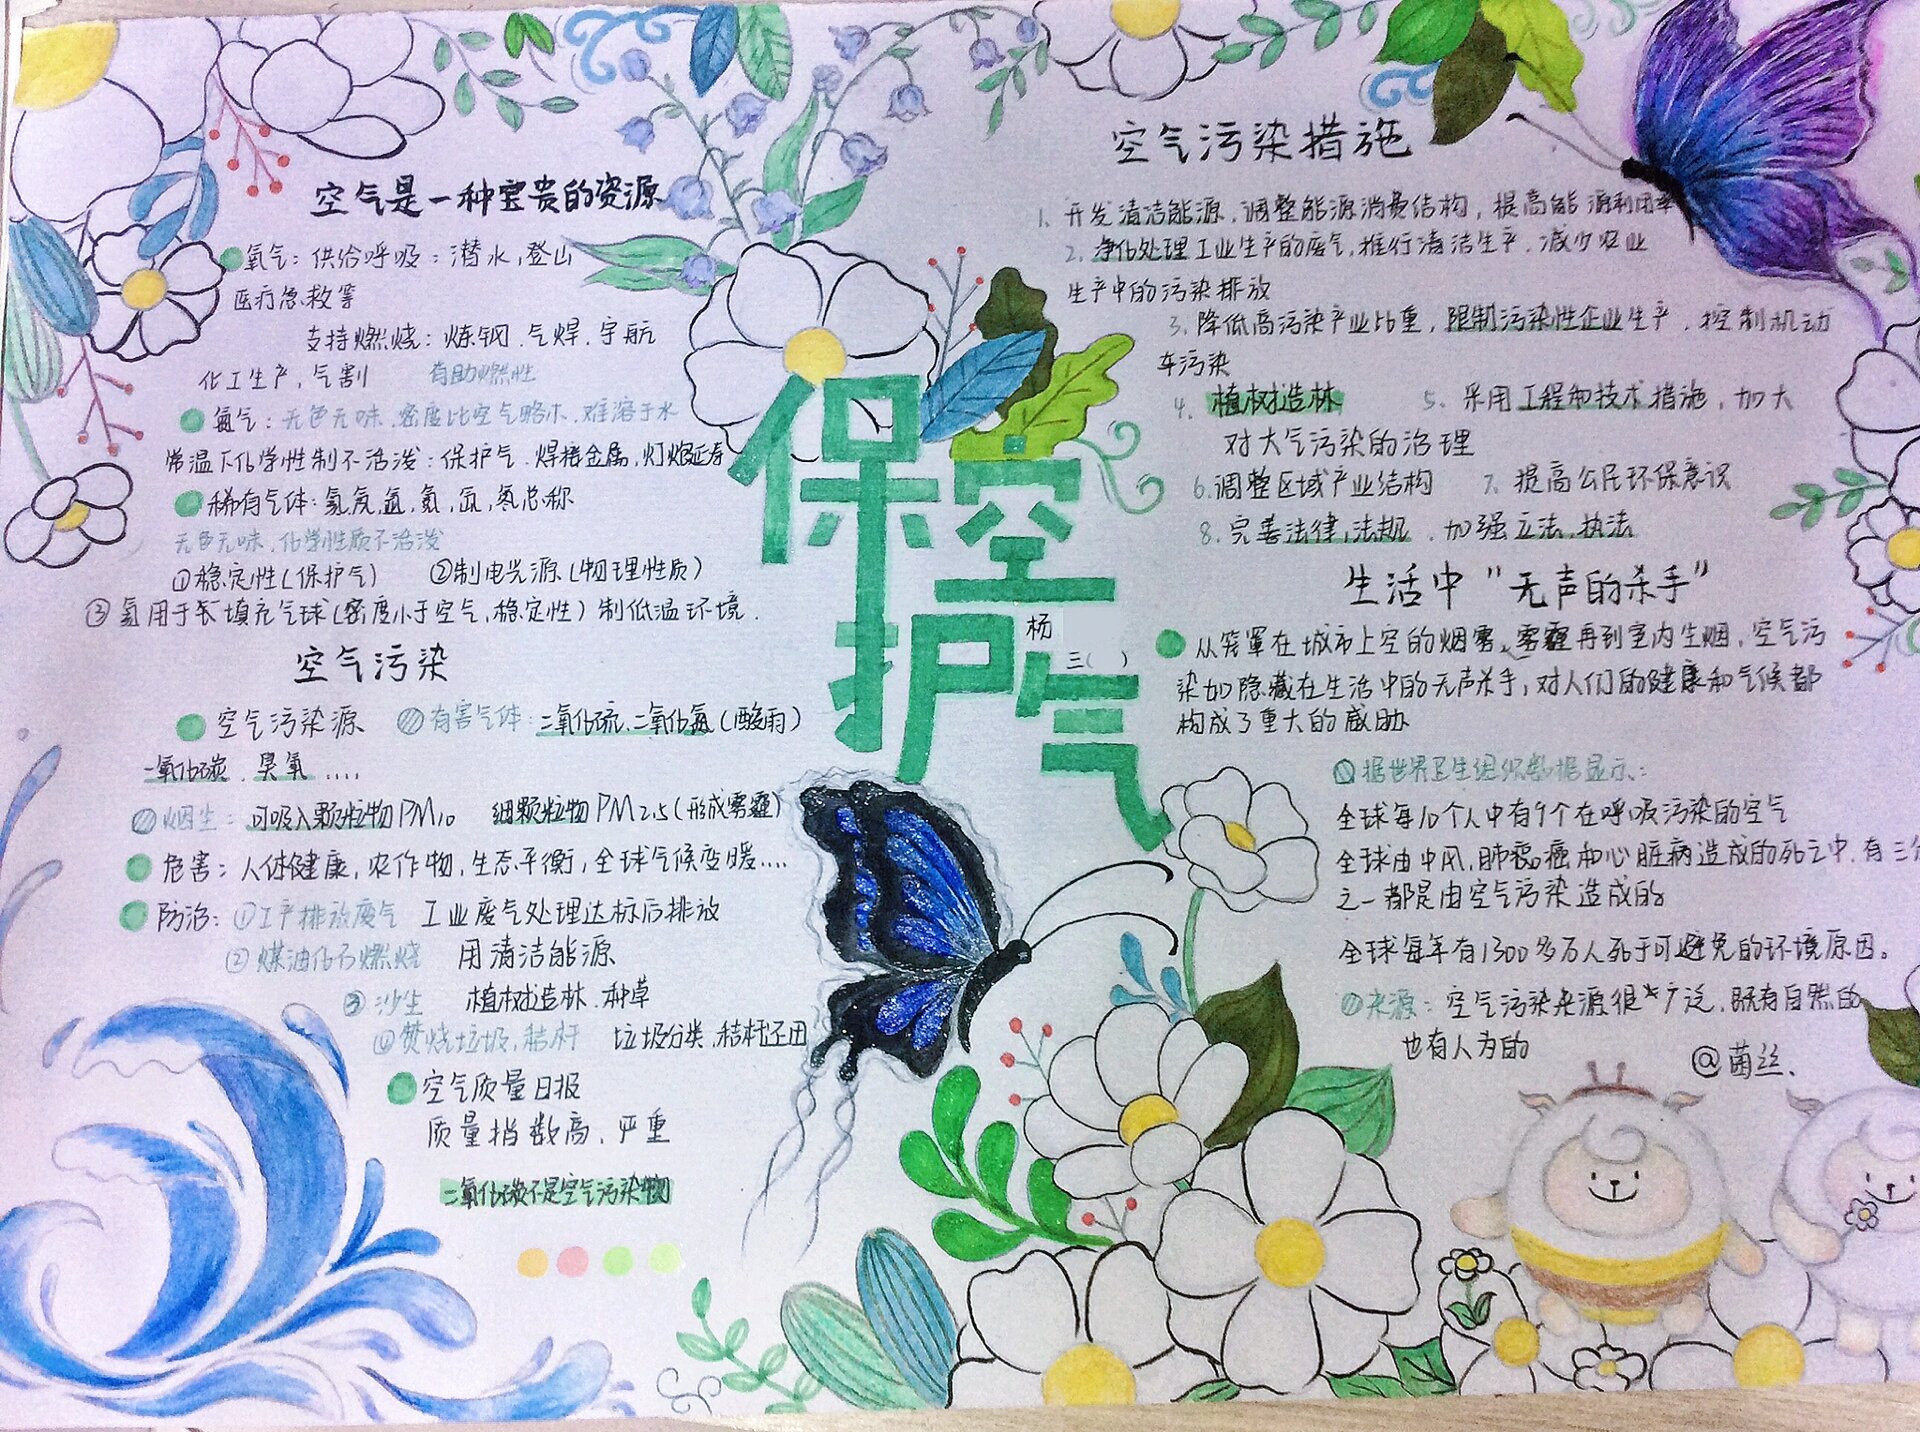 空气是一种宝贵的资源
氧气：供给呼吸：潜水，登山
医疗急救等
支持燃烧：炼钢.气焊.宇航
化工生产，气割 有助燃性
氮气：无色无味.密度比空气略小.难溶于水
常温下化学性制不活泼：保护气.焊接金属，灯炮延寿
稀有气体：氦，氖，氩，氪，氙，氡总称
无色无味.化学性质不活泼
①稳定性（保护气） ②制电光源（物理性质）
③氦用于 填充气球（密度小于空气，稳定性）制低温环境.
空气污染
空气污染源 有害气体：二氧化硫.二氧化氮（酸雨）
一氧化碳.臭氧....
烟尘：可吸入颗粒物PM10 细颗粒物PM2.5（形成雾霾）
危害：人体健康，农作物，生态平衡，全球气候变暖....
防治：①工产排放废气 工业废气处理达标后排放
②煤油化石燃烧 用清洁能源
③沙尘 植树造林.种草
④焚烧垃圾，秸秆 垃圾分类，秸秆还田
空气质量日报
质量指数高，严重
二氧化碳不是空气污染物
保护空气
杨
三（ ）
空气污染措施
1.开发清洁能源.调整能源消费结构，提高能源利用率
2.净化处理工业生产的废气，推行清洁生产.减少农业
生产中的污染排放
3.降低高污染产业比重，限制污染性企业生产.控制机动
车污染
4.植树造林 5.采用工程和技术措施，加大
对大气污染的治理
6.调整区域产业结构 7.提高公民环保意识
8.完善法律，法规.加强立法，执法
生活中“无声的杀手”
从笼罩在城市上空的烟雾、雾霾再到室内生烟，空气污
染如隐藏在生活中的无声杀手，对人们的健康和气候都
构成了重大的威胁
据世界卫生组织数据显示：
全球每10个人中有9个在呼吸污染的空气
全球由中风，肺癌和心脏病造成的死亡中.有三分
之一都是由空气污染造成的
全球每年有1300多万人死于可避免的环境原因。
来源：空气污染来源很广泛.既有自然的
也有人为的
@菌丝.